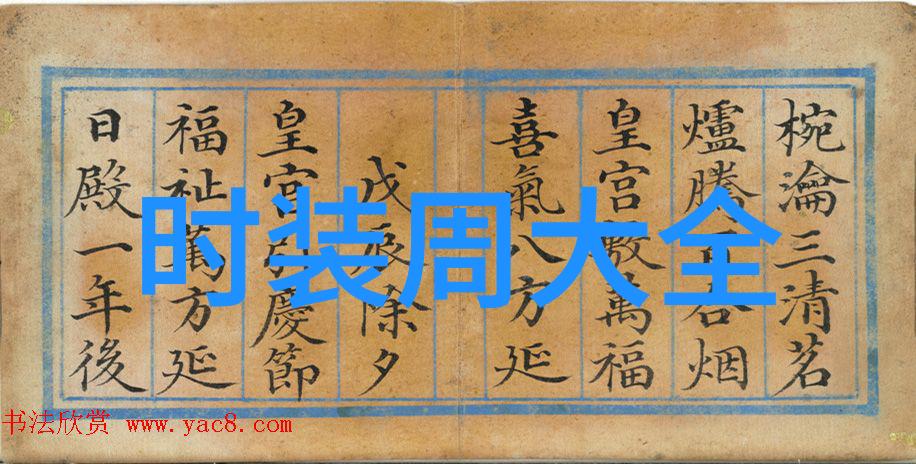 椀瀹三清茗
爐騰百合烟
皇宮敷萬福
喜氣八方延
戊辰除夕
皇宮引慶節
福祉萬方延
日殿一年後
时装周大全
书法欣赏 www.yac8.com